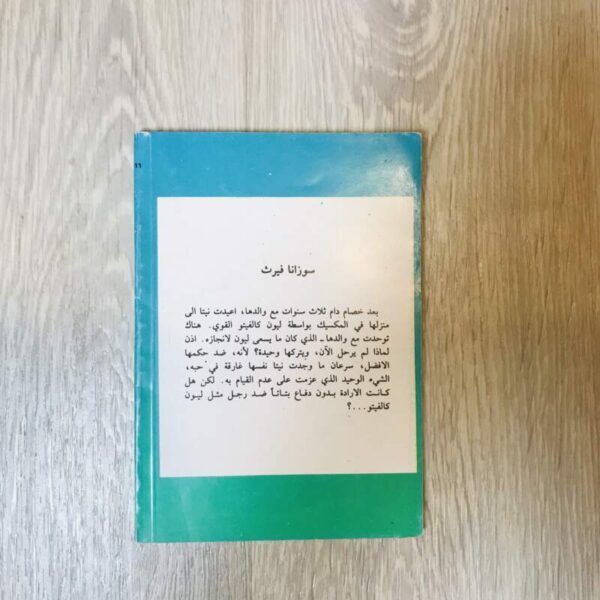 ١١
سوزانا فيرث
بعد خصام دام ثلاث سنوات مع والدها، اعيدت نيتا الى
منزلها في المكسيك بواسطة ليون كالفيتو القوي. هناك
توحدت مع والدها ـ الذي كان ما يسمى ليون لانجازه. اذن
لماذا لم يرحل الآن، ويتركها وحيدة؟ لأنه، ضد حكمها
الافضل، سرعان ما وجدت نيتا نفسها غارقة في حبه،
الشيء الوحيد الذي عزمت على عدم القيام به. لكن هل
كانت الارادة بدون دفاع بتاتاً ضد رجل مثل ليون
كالفيتو...؟